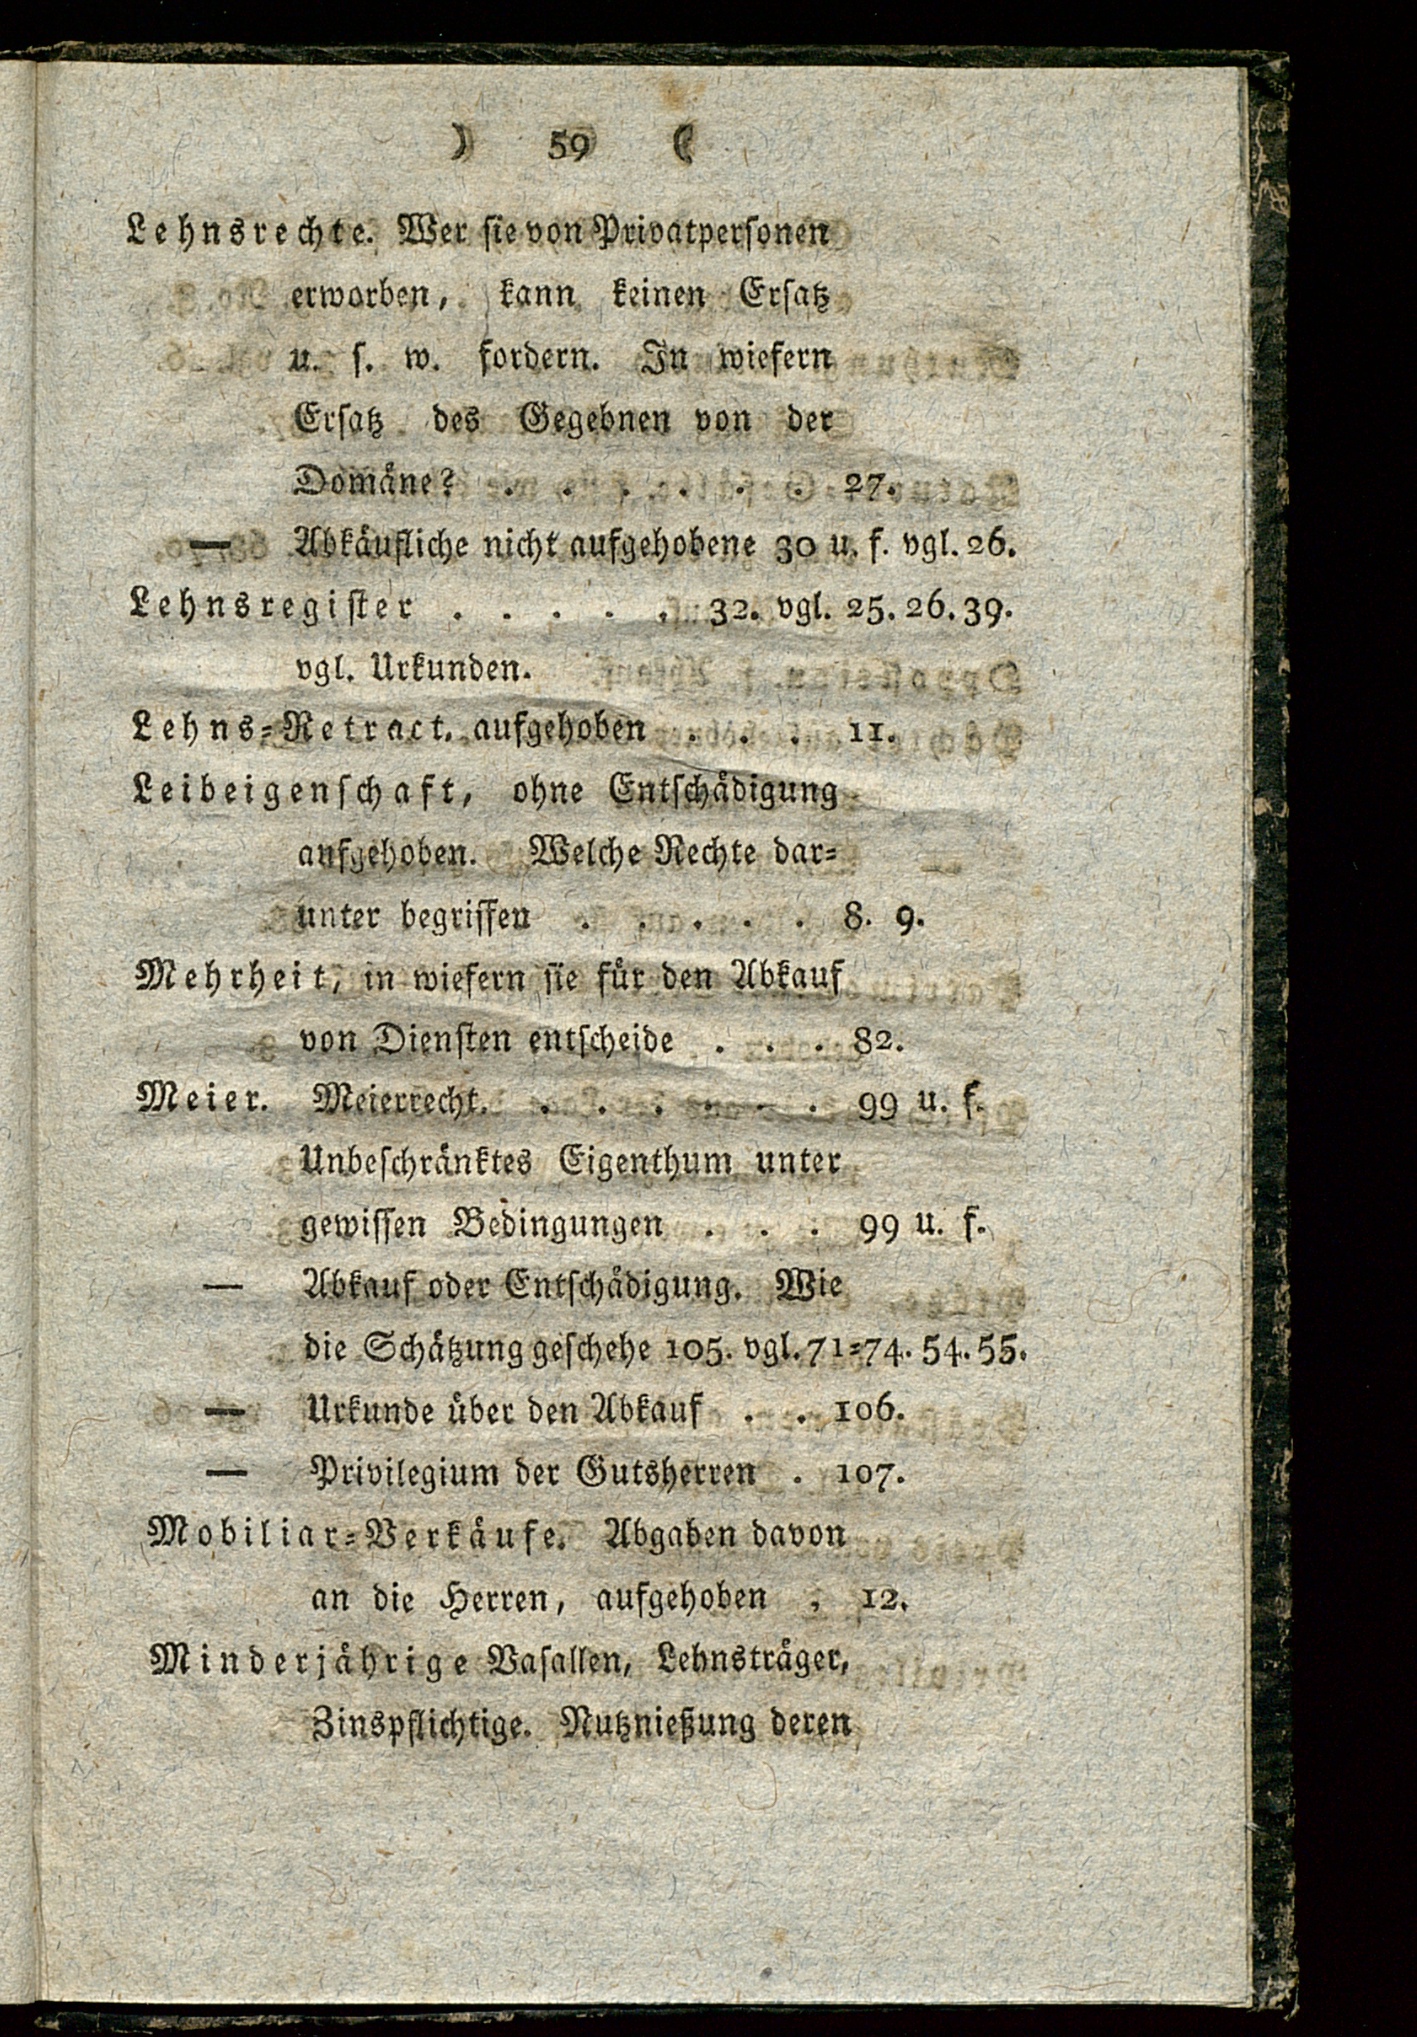 ) 59 (
Lehnsrechte. Wer sie von Privatpersonen
erworben, kann keinen Ersatz
u. s. w. fordern. In wiefern
Ersatz des Gegebnen von der
Domäne? . . . . . . 27.
— Abkäufliche nicht aufgehobene 30 u. f. vgl. 26.
Lehnsregister . . . . . 32. vgl. 25. 26. 39.
vgl. Urkunden.
Lehns-Retract. aufgehoben . . . 11.
Leibeigenschaft, ohne Entschädigung
aufgehoben. Welche Rechte dar-
unter begriffen . . . . . 8. 9.
Mehrheit, in wiefern sie für den Abkauf
von Diensten entscheide . . . 82.
Meier. Meierrecht. . . . . . . 99 u. f.
Unbeschränktes Eigenthum unter
gewissen Bedingungen . . . 99 u. f.
— Abkauf oder Entschädigung. Wie
die Schätzung geschehe 105. vgl. 71-74. 54. 55.
— Urkunde über den Abkauf . . 106.
— Privilegium der Gutsherren . 107.
Mobiliar-Verkäufe. Abgaben davon
an die Herren, aufgehoben . 12.
Minderjährige Vasallen, Lehnsträger,
Zinspflichtige. Nutznießung deren